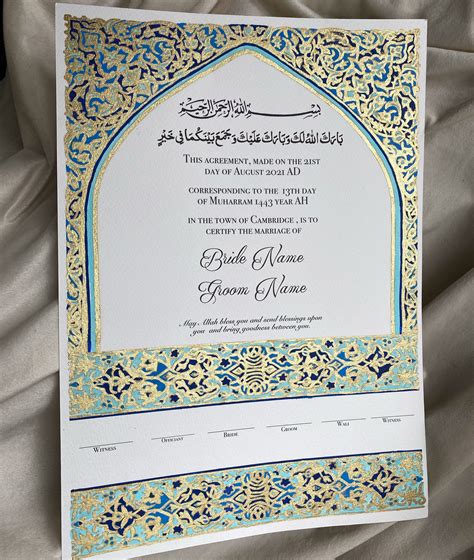 بِسْمِ اللهِ الرَّحْمٰنِ الرَّحِيْمِ
بَارَكَ اللهُ لَكَ وَبَارَكَ عَلَيْكَ وَجَمَعَ بَيْنَكُمَا فِي خَيْرٍ
This agreement, made on the 21st
day of August 2021 AD
corresponding to the 13th day
of Muharram 1443 year AH
in the town of Cambridge , is to
certify the marriage of
Bride Name
Groom Name
May Allah bless you and send blessings upon
you and bring goodness between you.
Witness Officiant Bride Groom Wali Witness